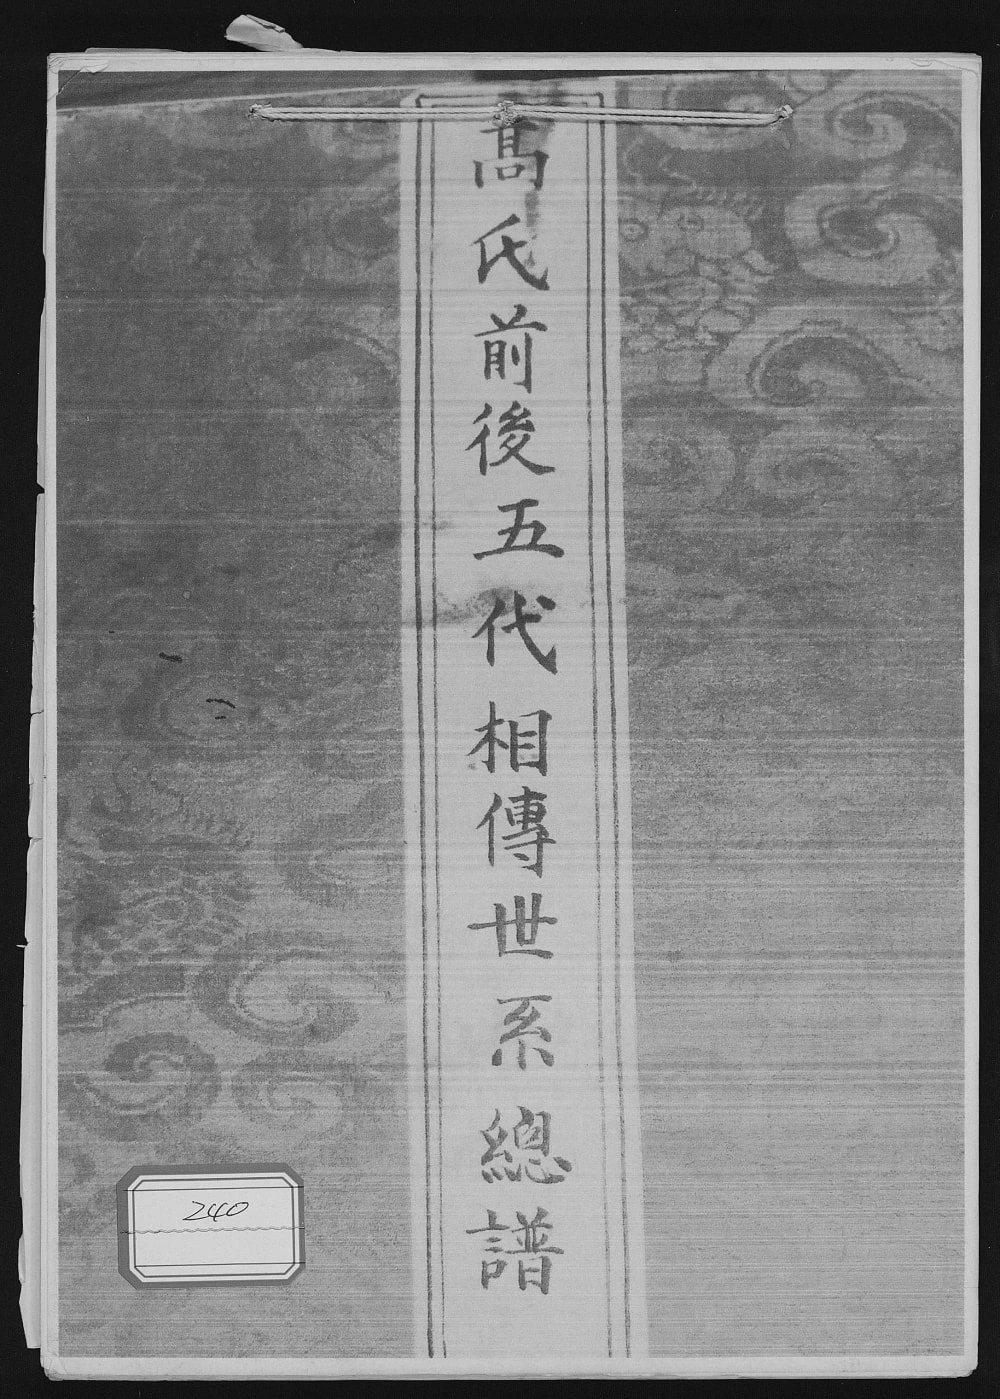 髙氏前後五代相傳世系總譜
240